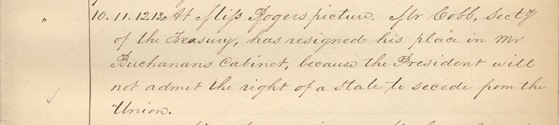 " 10. 11. 12. 12c At Miss Rogers picture. Mr Cobb, Secty
of the Treasury, has resigned his place in Mr
Buchanans Cabinet, because the President will
not admit the right of a State to secede from the
Union.